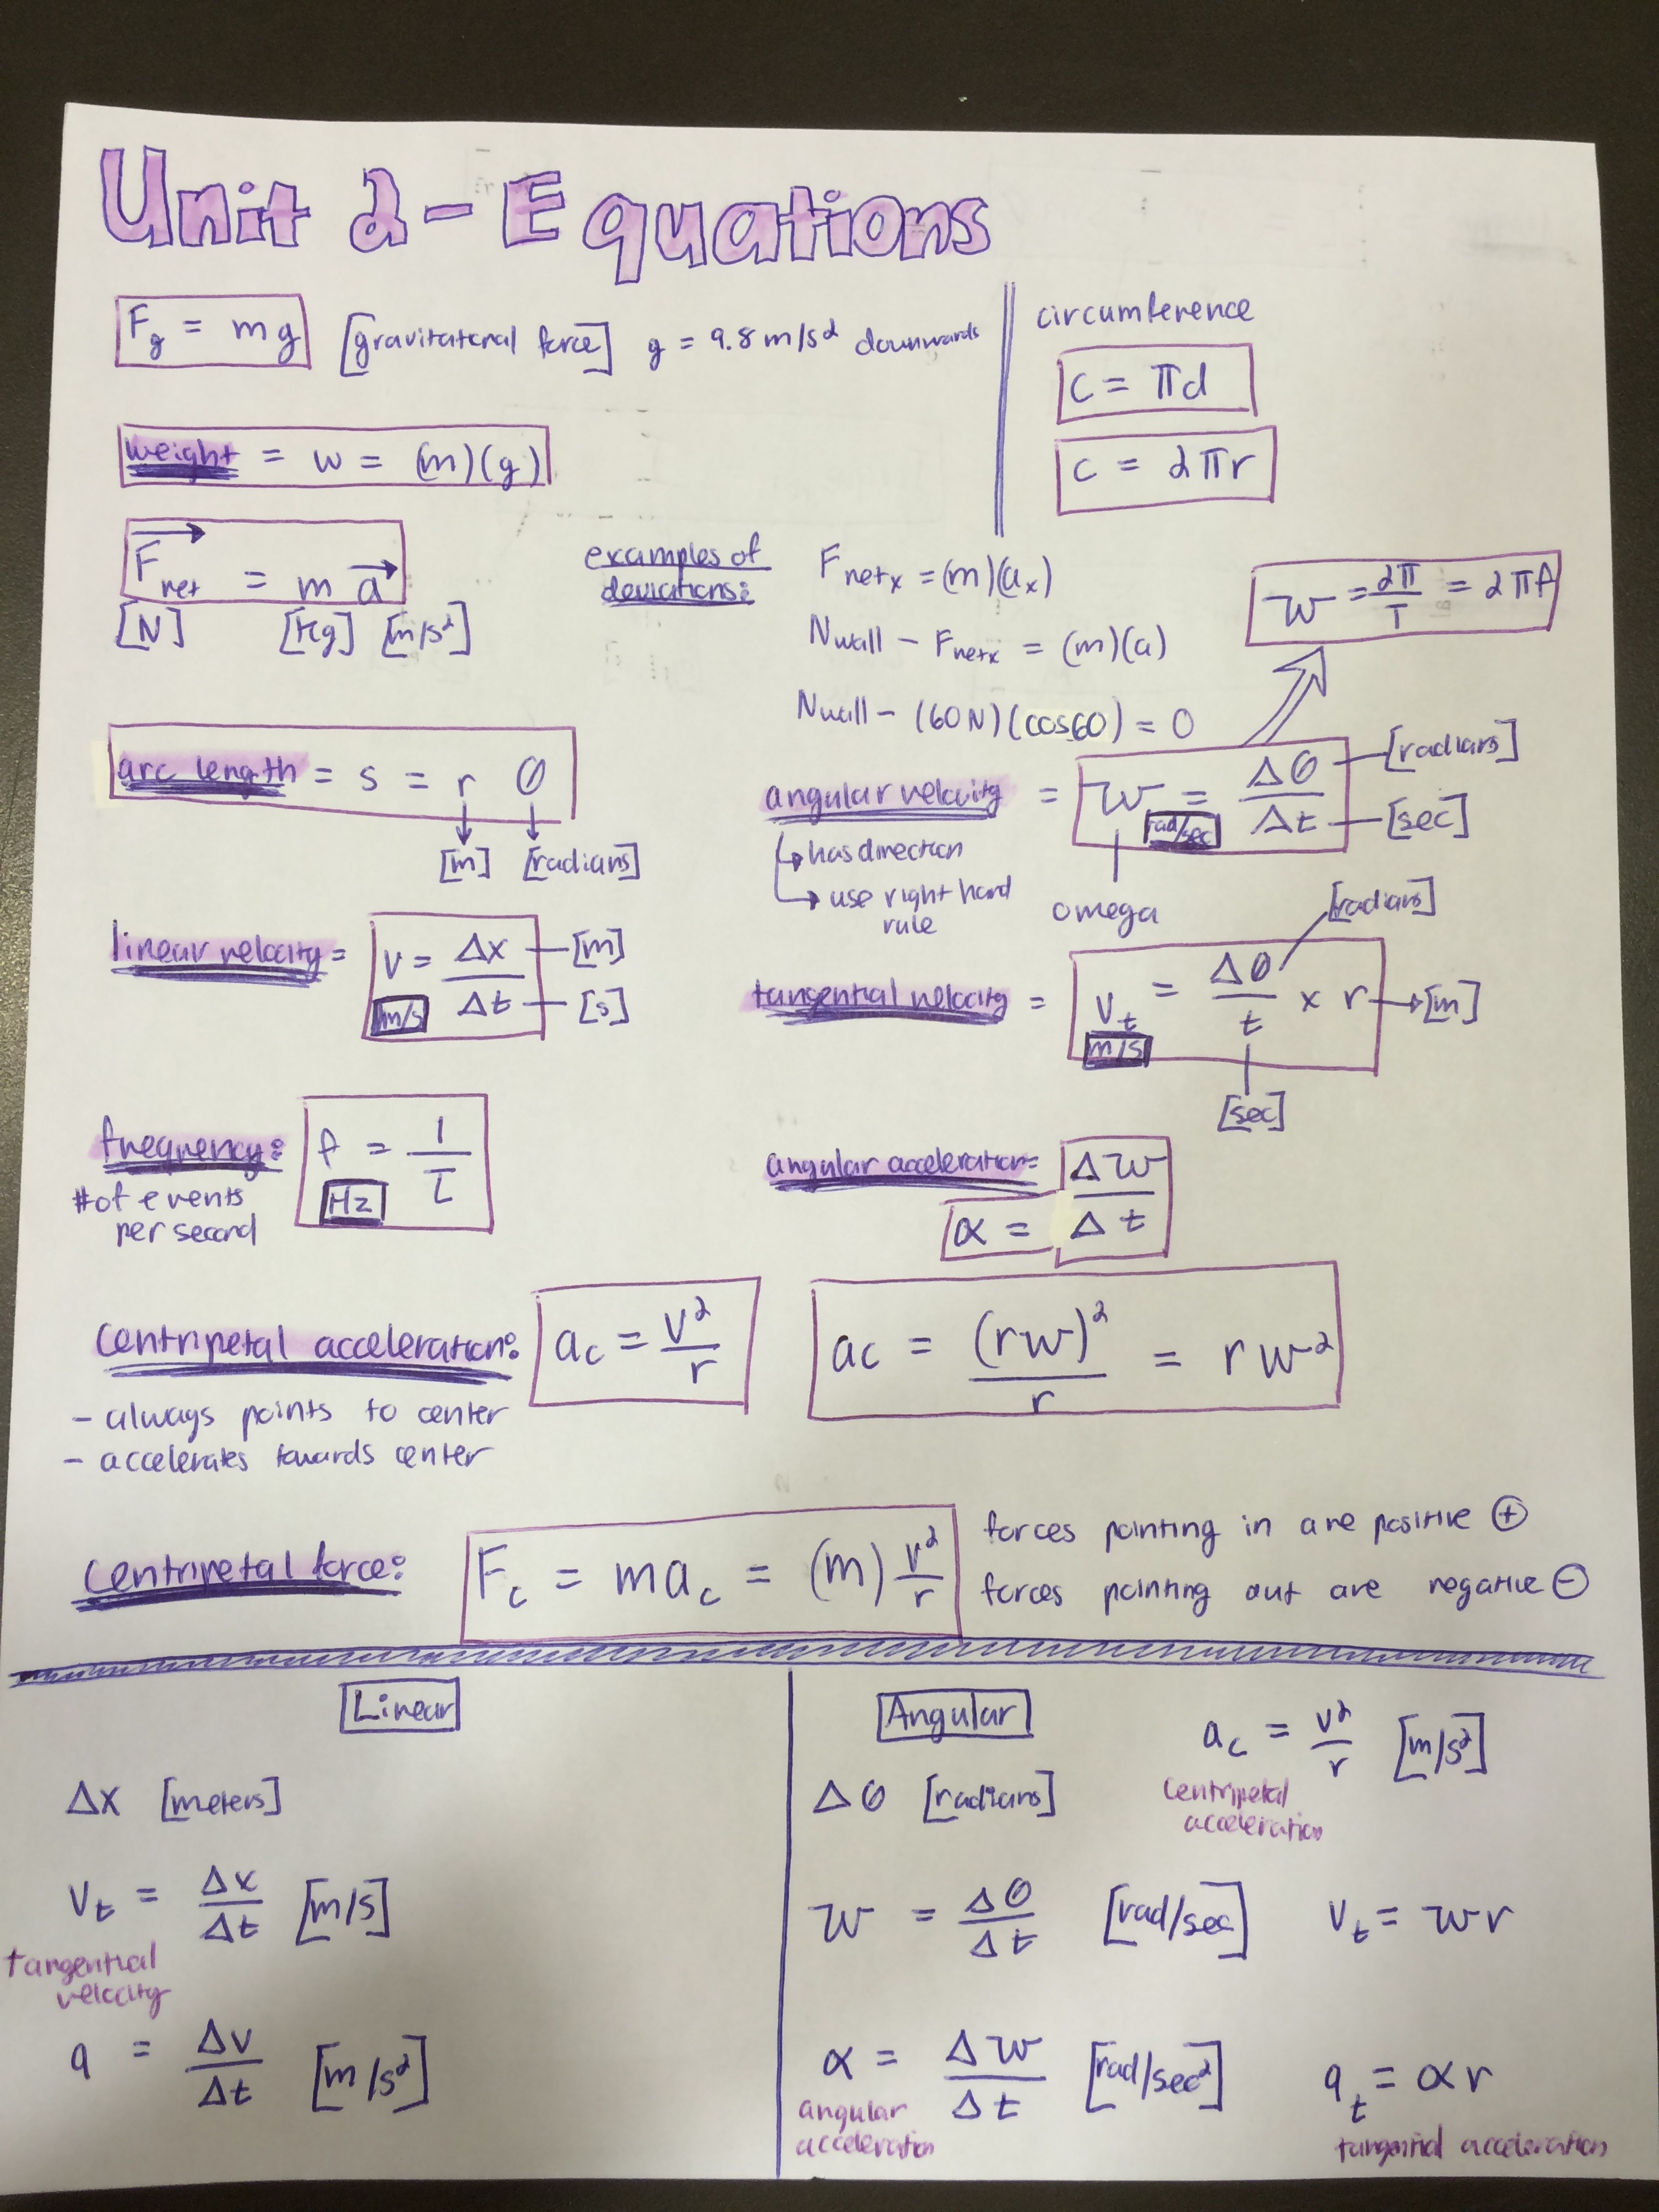 Unit 2 - Equations
F_g = mg [gravitational force] g = 9.8 m/s² downwards
circumference
c = πd
c = 2πr
weight = w = (m)(g)
F⃗_net = m a⃗
[N] [kg] [m/s²]
examples of
deviations:
F_netx = (m)(a_x)
N_wall − F_netx = (m)(a)
N_wall − (60N)(cos60) = 0
w = 2π/T = 2πf
arc length = s = r θ
[m] [radians]
angular velocity = w = Δθ/Δt
[radians]
[sec]
rad/sec
has direction
use right hand
rule
omega
linear velocity = v = Δx/Δt
[m]
[s]
m/s
tangential velocity = v_t = Δθ/t × r
[radians]
[m]
m/s
[sec]
frequency: f = 1/T
Hz
# of events
per second
angular acceleration = Δw/Δt
α =
centripetal acceleration: a_c = v²/r
ac = (rw)²/r = rw²
- always points to center
- accelerates towards center
centripetal force: F_c = ma_c = (m) v²/r
forces pointing in are positive ⊕
forces pointing out are negative ⊖
Linear
Δx [meters]
v_t = Δx/Δt [m/s]
tangential
velocity
a = Δv/Δt [m/s²]
Angular
Δθ [radians]
a_c = v²/r [m/s²]
centripetal
acceleration
w = Δθ/Δt [rad/sec]
v_t = wr
α = Δw/Δt [rad/sec²]
angular
acceleration
a_t = αr
tangential acceleration